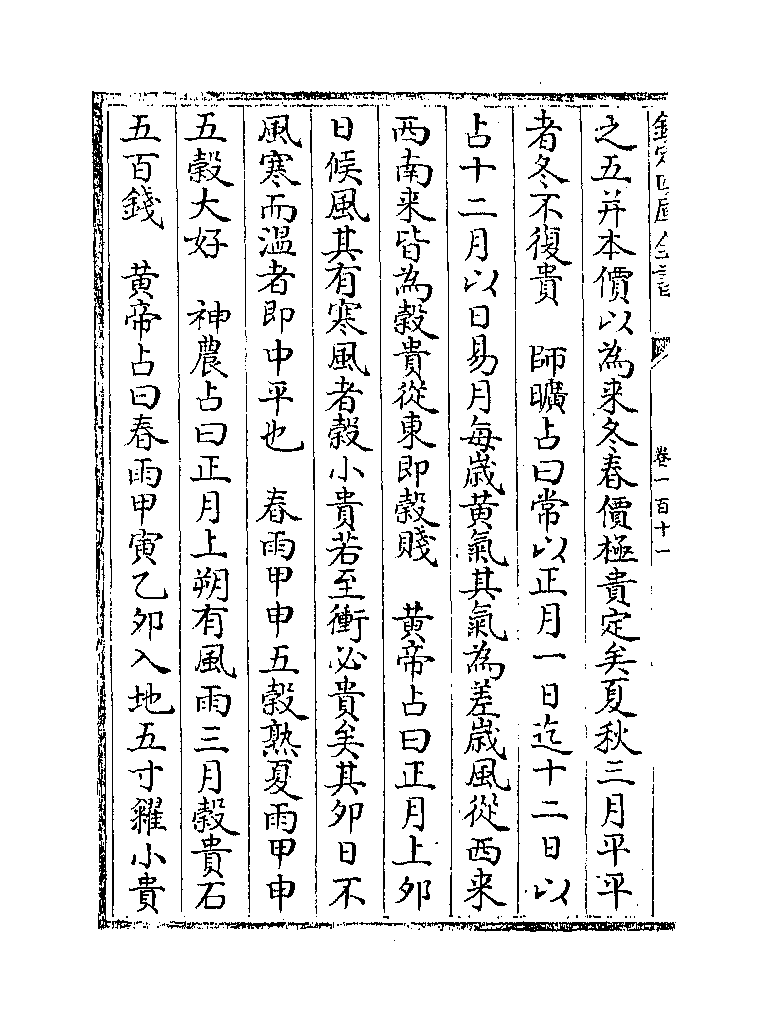 欽定四庫全書　卷一百十一
之五并本價以為来冬春價極貴定矣夏秋三月平平
者冬不復貴　師曠占曰常以正月一日迄十二日以
占十二月以日易月每歲黄氣其氣為差歲風從西来
西南来皆為穀貴從東即穀賤　黄帝占曰正月上卯
日候風其有寒風者穀小貴若至衝必貴矣其卯日不
風寒而温者即中平也　春雨甲申五穀熟夏雨甲申
五穀大好　神農占曰正月上朔有風雨三月穀貴石
五百錢　黄帝占曰春雨甲寅乙卯入地五寸糴小貴